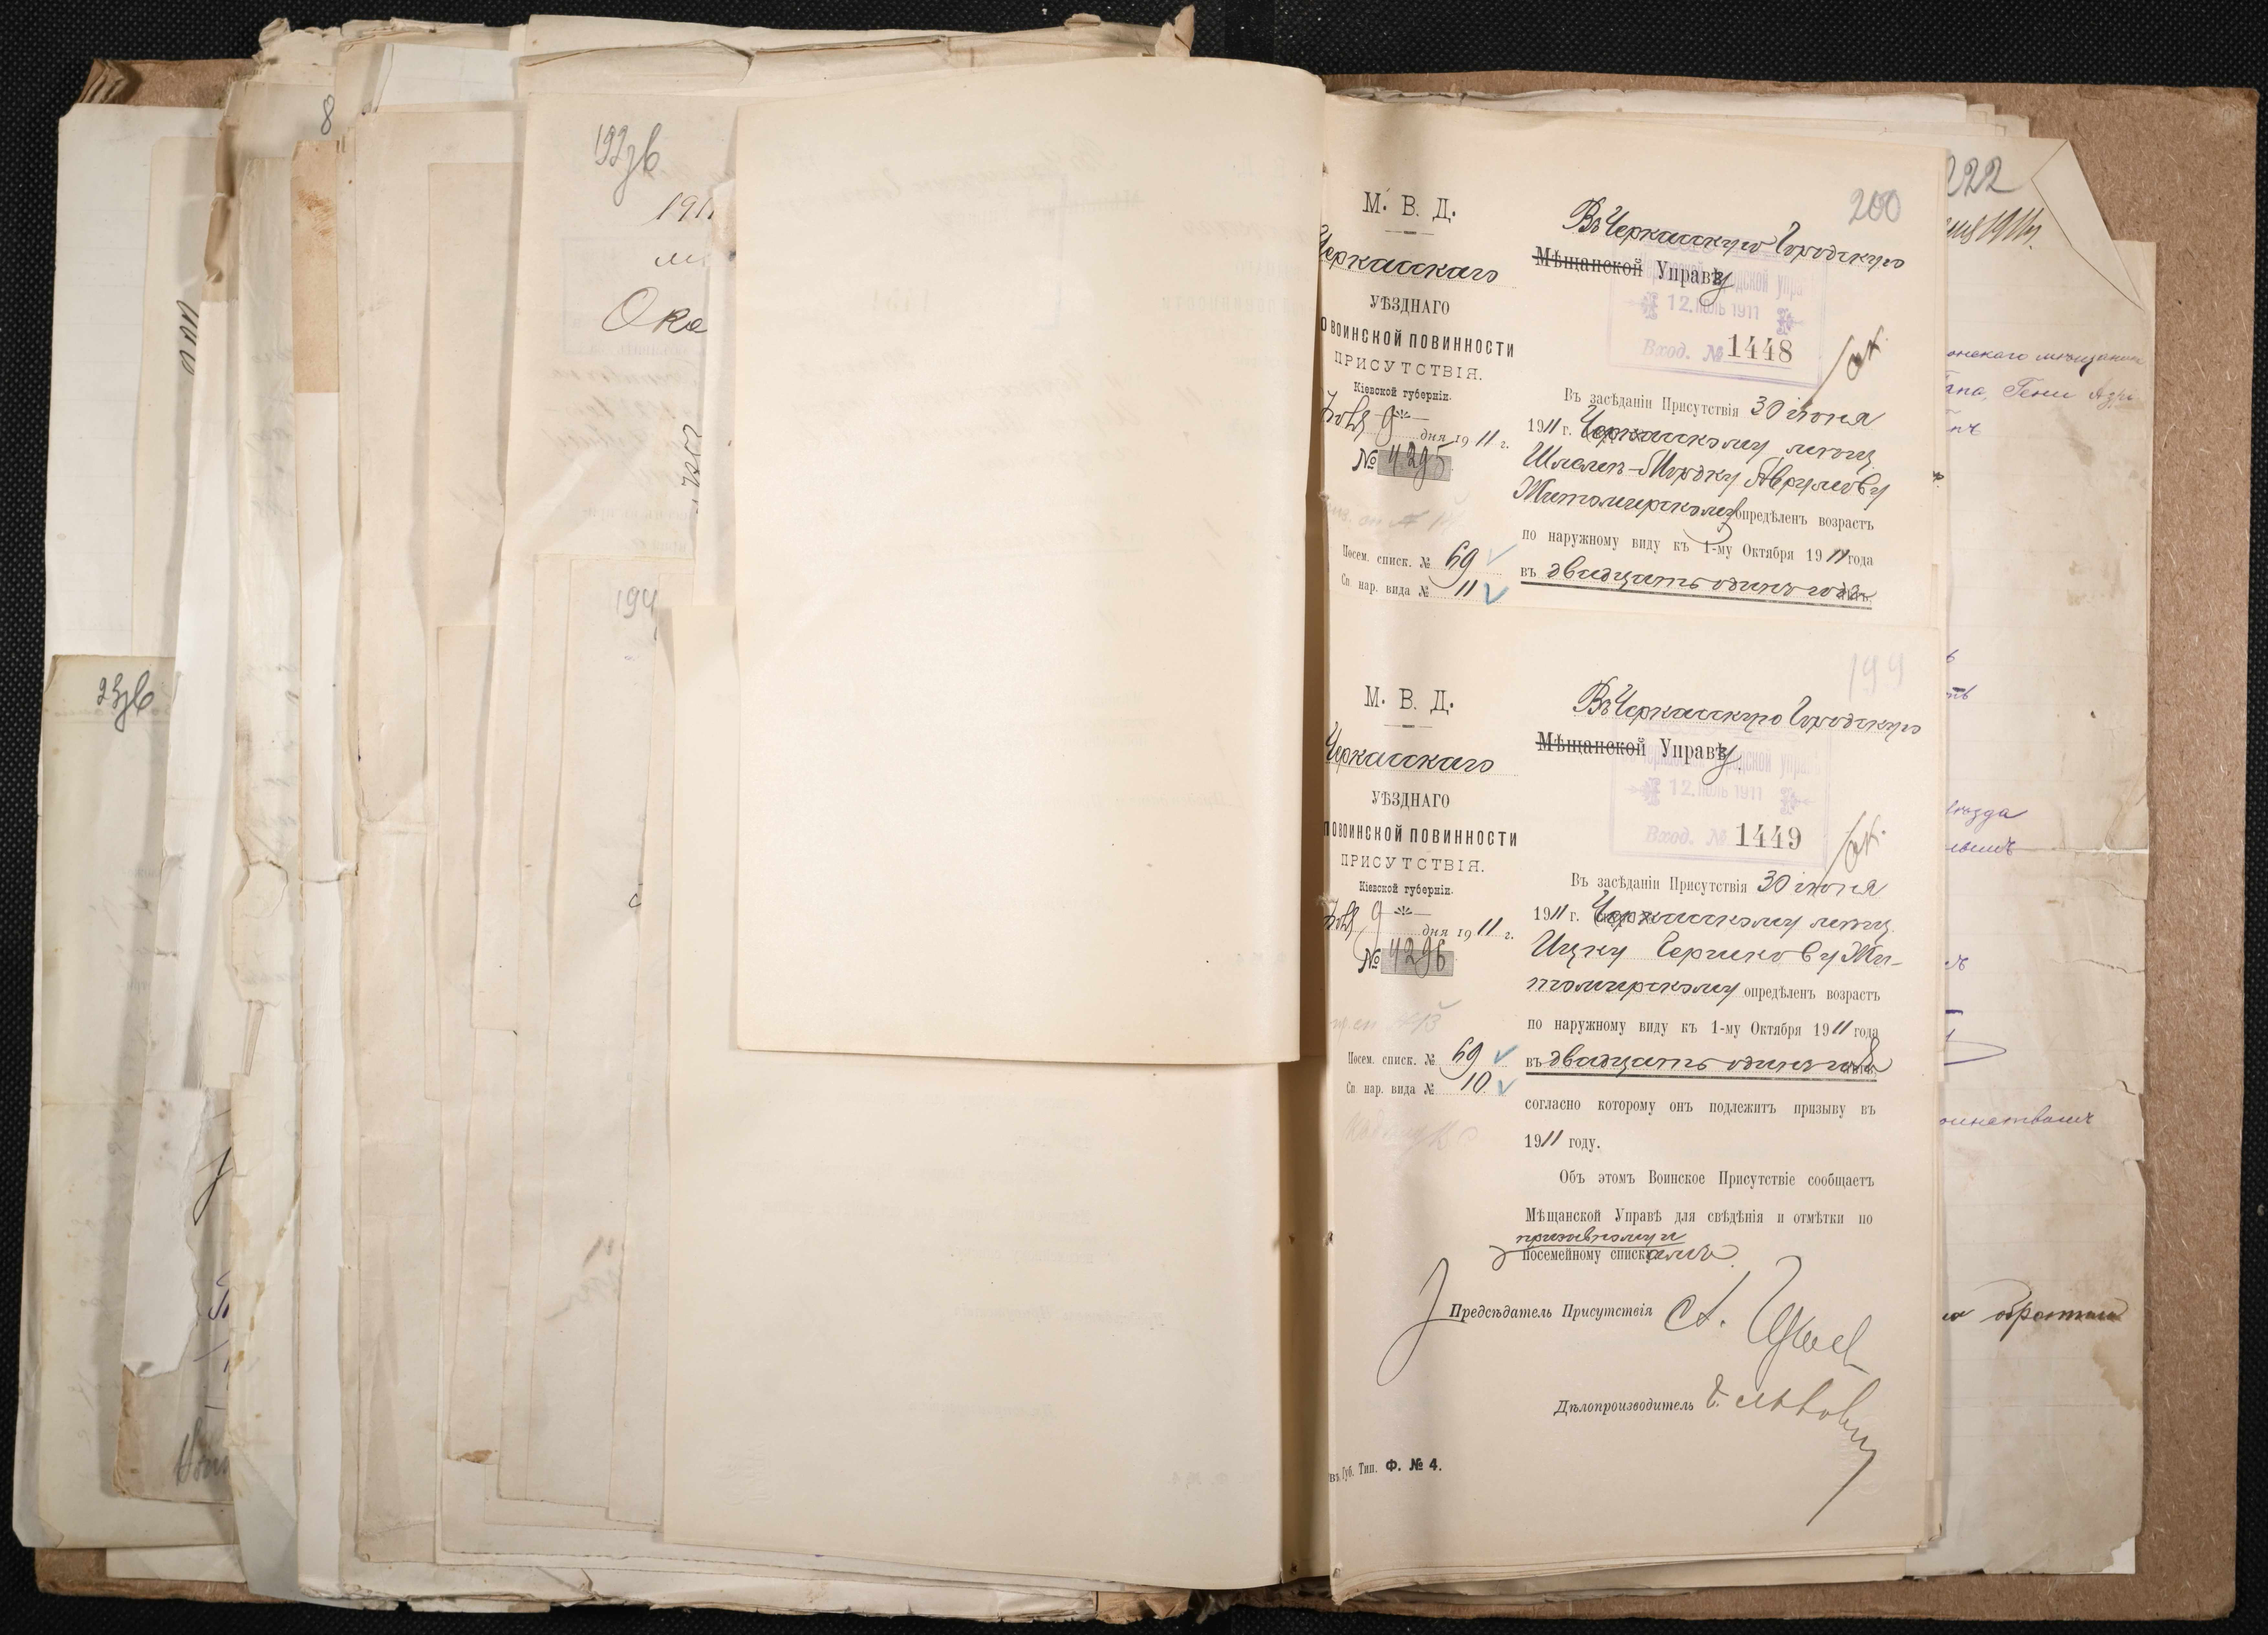 8
192 зв
1911
Ока
23 зв
194
200
М. В. Д.
Черкасскаго
УѢЗДНАГО
ПО ВОИНСКОЙ ПОВИННОСТИ
ПРИСУТСТВІЯ.
Кіевской губерніи.
9
дня 1911 г.
№ 4295
Посем. списк. № 69
Сп. нар. вида № 11
Въ Черкасскую Городскую
Мѣщанской Управу
12. ІЮЛЬ 1911
Вход. № 1448
Въ засѣданіи Присутствія 30 іюня
1911 г. Черкасскому мѣщ.
Шлемѣ-Мордку Аврумову
Житомирскому опредѣленъ возрастъ
по наружному виду къ 1-му Октября 1911 года
въ двадцать одинъ годъ
199
М. В. Д.
Черкасскаго
УѢЗДНАГО
ПО ВОИНСКОЙ ПОВИННОСТИ
ПРИСУТСТВІЯ.
Кіевской губерніи.
9
дня 1911 г.
№ 4296
Посем. списк. № 69
Сп нар. вида № 10.
Въ Черкасскую Городскую
Мѣщанской Управу
12. ІЮЛЬ 1911
Вход. № 1449
Въ засѣданіи Присутствія 30 іюня
1911 г. Черкасскому мѣщ.
Ицку Гершкову Жи-
томирскому опредѣленъ возрастъ
по наружному виду къ 1-му Октября 1911 года
въ двадцать одинъ годъ
согласно которому онъ подлежитъ призыву въ
1911 году.
Объ этомъ Воинское Присутствіе сообщаетъ
Мѣщанской Управѣ для свѣдѣнія и отмѣтки по
призывному и
посемейному спискамъ.
Предсѣдатель Присутствія
Дѣлопроизводитель
Губ. Тип. Ф. № 4.
222
1911 г.
онскаго мѣщанина
Гени
ѣзда